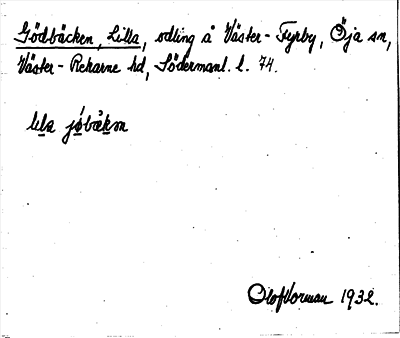 Gödbäcken, Lilla, odling å Väster-Fyrby, Öja sn,
Väster-Rekarne hd, Södermanl. l. 74.
lıla jøbäkan
Olof Vorman 1932.